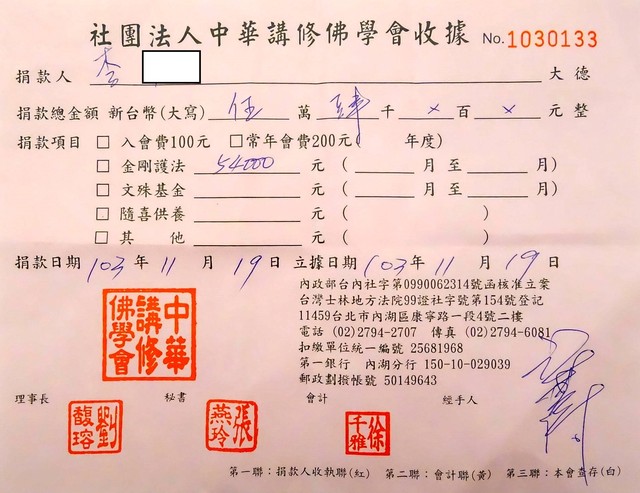 社團法人中華講修佛學會收據 No.1030133
捐款人 李 大德
捐款總金額 新台幣(大寫) 伍 萬 肆 千 × 百 × 元 整
捐款項目 □ 入會費100元 □常年會費200元( 年度)
□ 金剛護法 54000 元 ( 月 至 月)
□ 文殊基金 元 ( 月 至 月)
□ 隨喜供養 元 ( )
□ 其 他 元 ( )
捐款日期 103 年 11 月 19 日 立據日期 103 年 11 月 19 日
內政部台內社字第0990062314號函核准立案
台灣士林地方法院99證社字號第154號登記
11459台北市內湖區康寧路一段4號二樓
電話 (02)2794-2707 傳真 (02)2794-6081
扣繳單位統一編號 25681968
第一銀行 內湖分行 150-10-029039
郵政劃撥帳號 50149643
中華講修佛學會
理事長 秘書 會計 經手人
劉馥瑢 張燕玲 徐千雅
第一聯：捐款人收執聯(紅) 第二聯：會計聯(黃) 第三聯：本會查存(白)